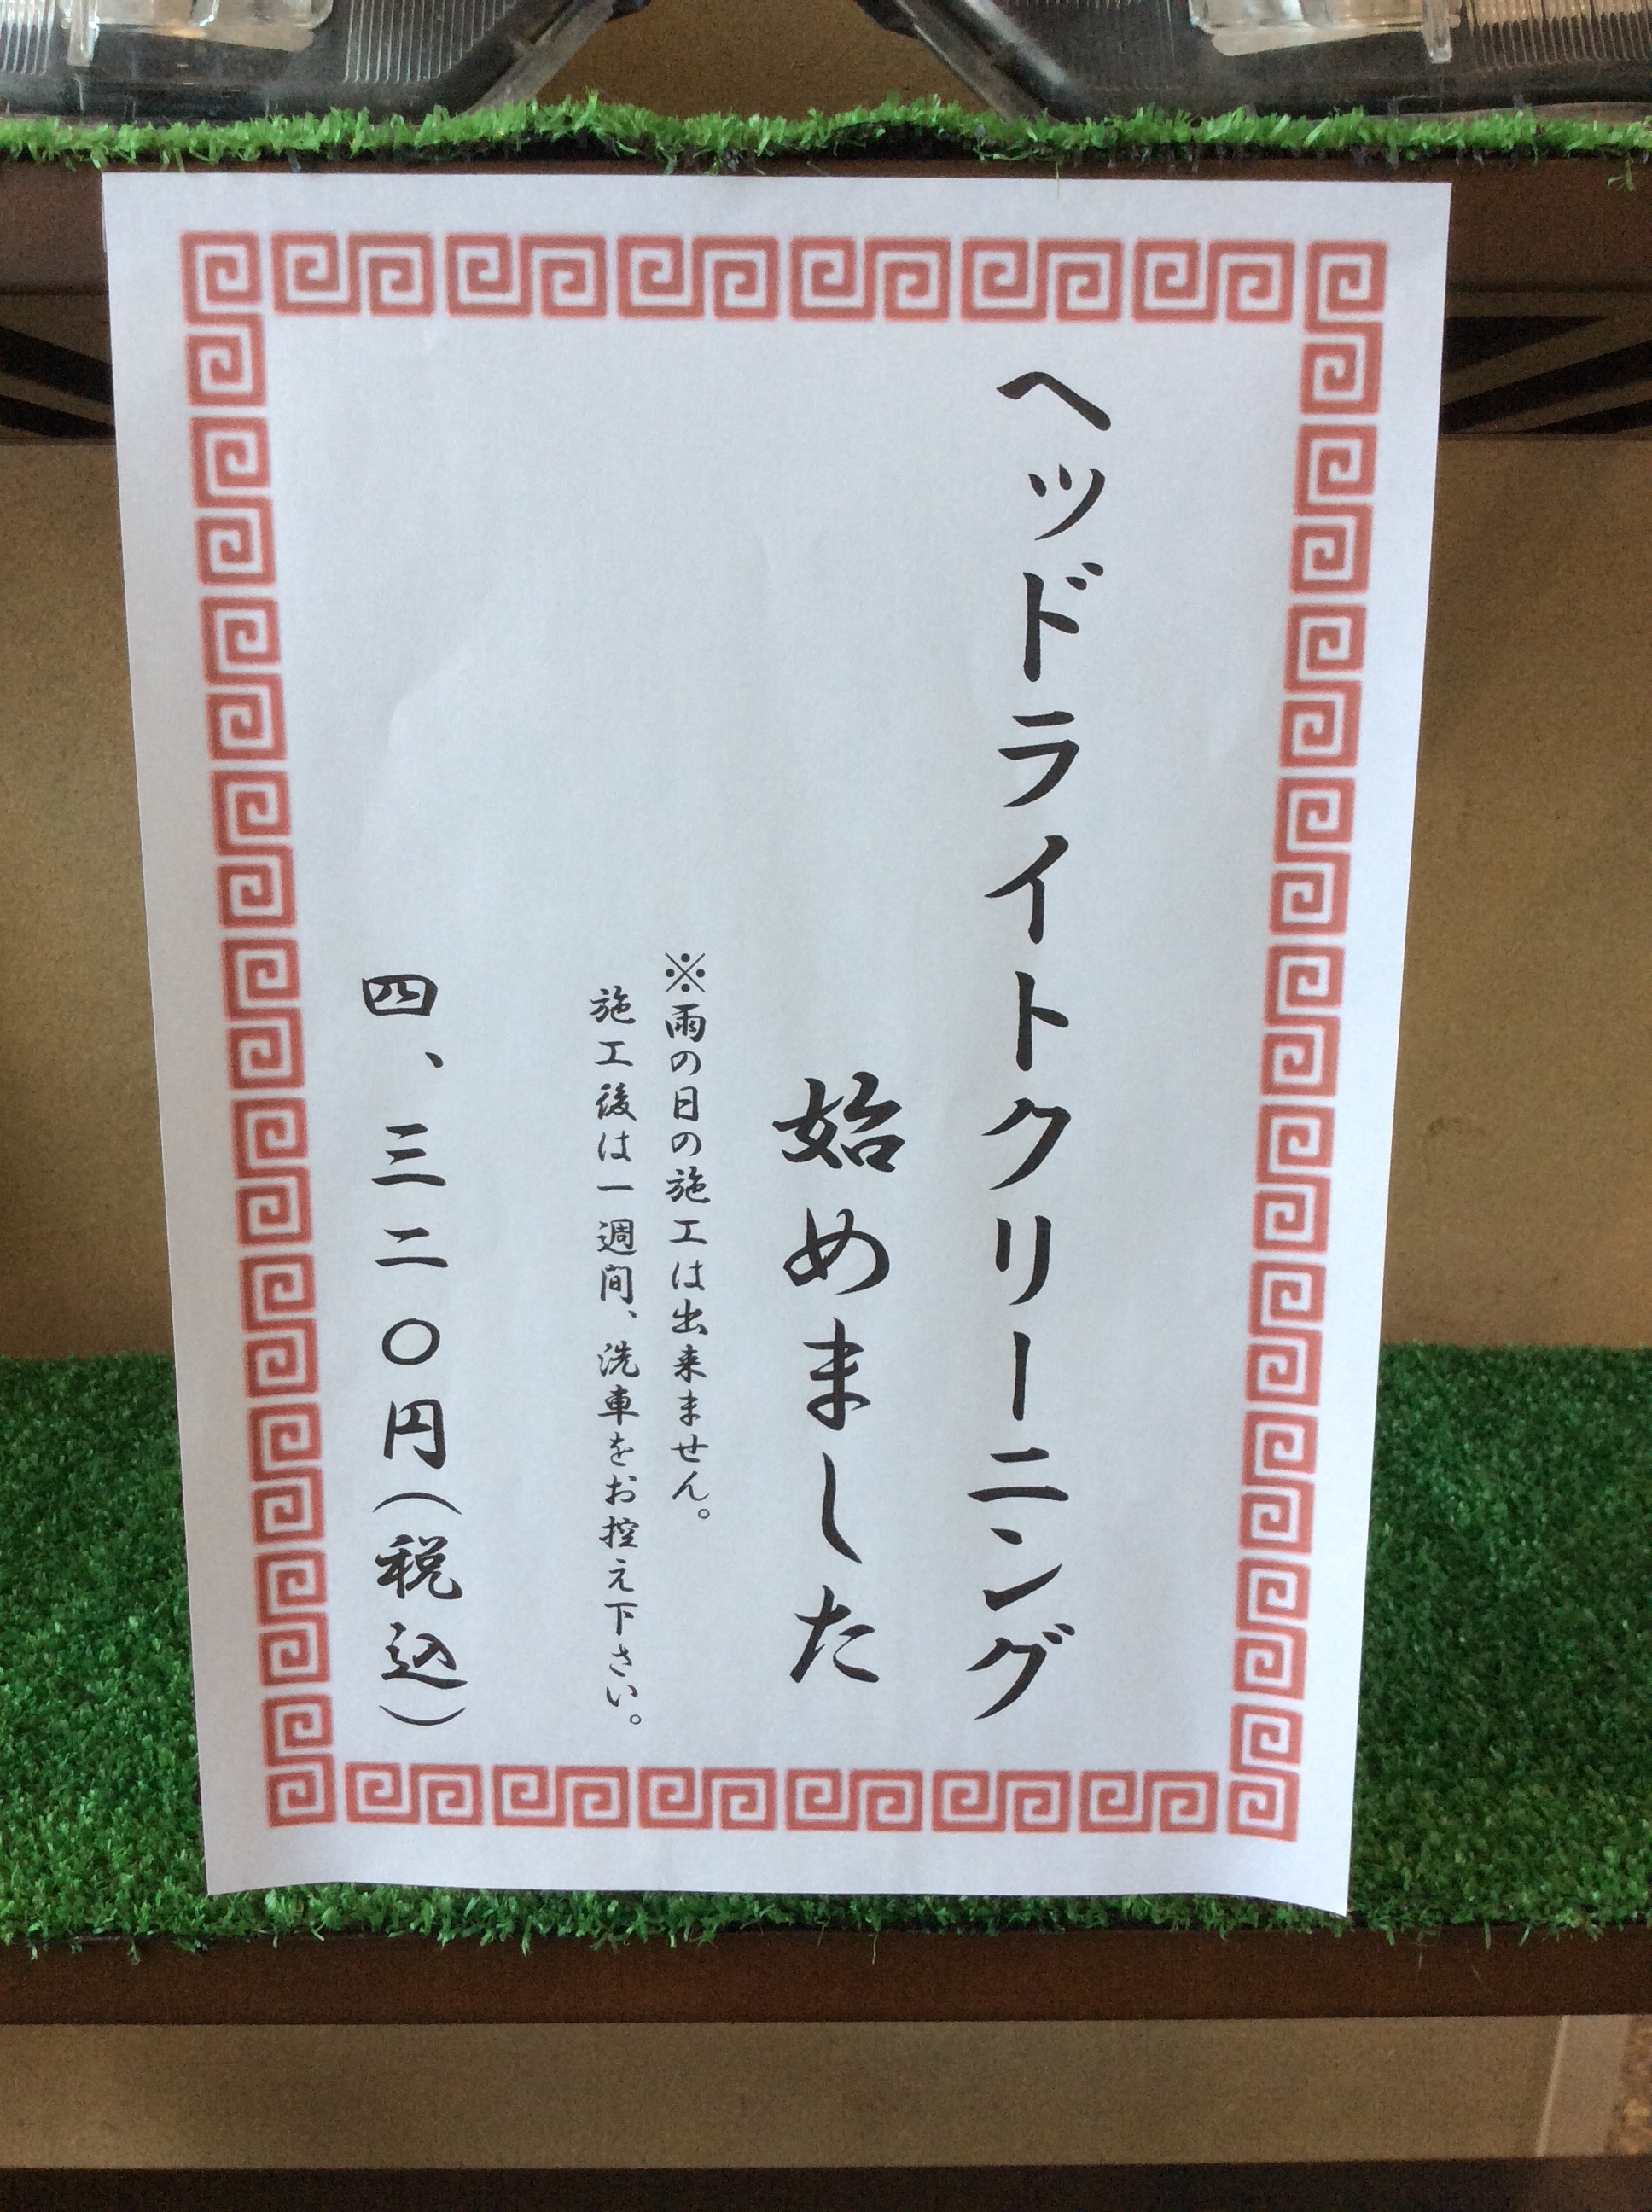 ヘッドライトクリーニング
始めました
※雨の日の施工は出来ません。
施工後は一週間、洗車をお控え下さい。
四、三二〇円(税込)